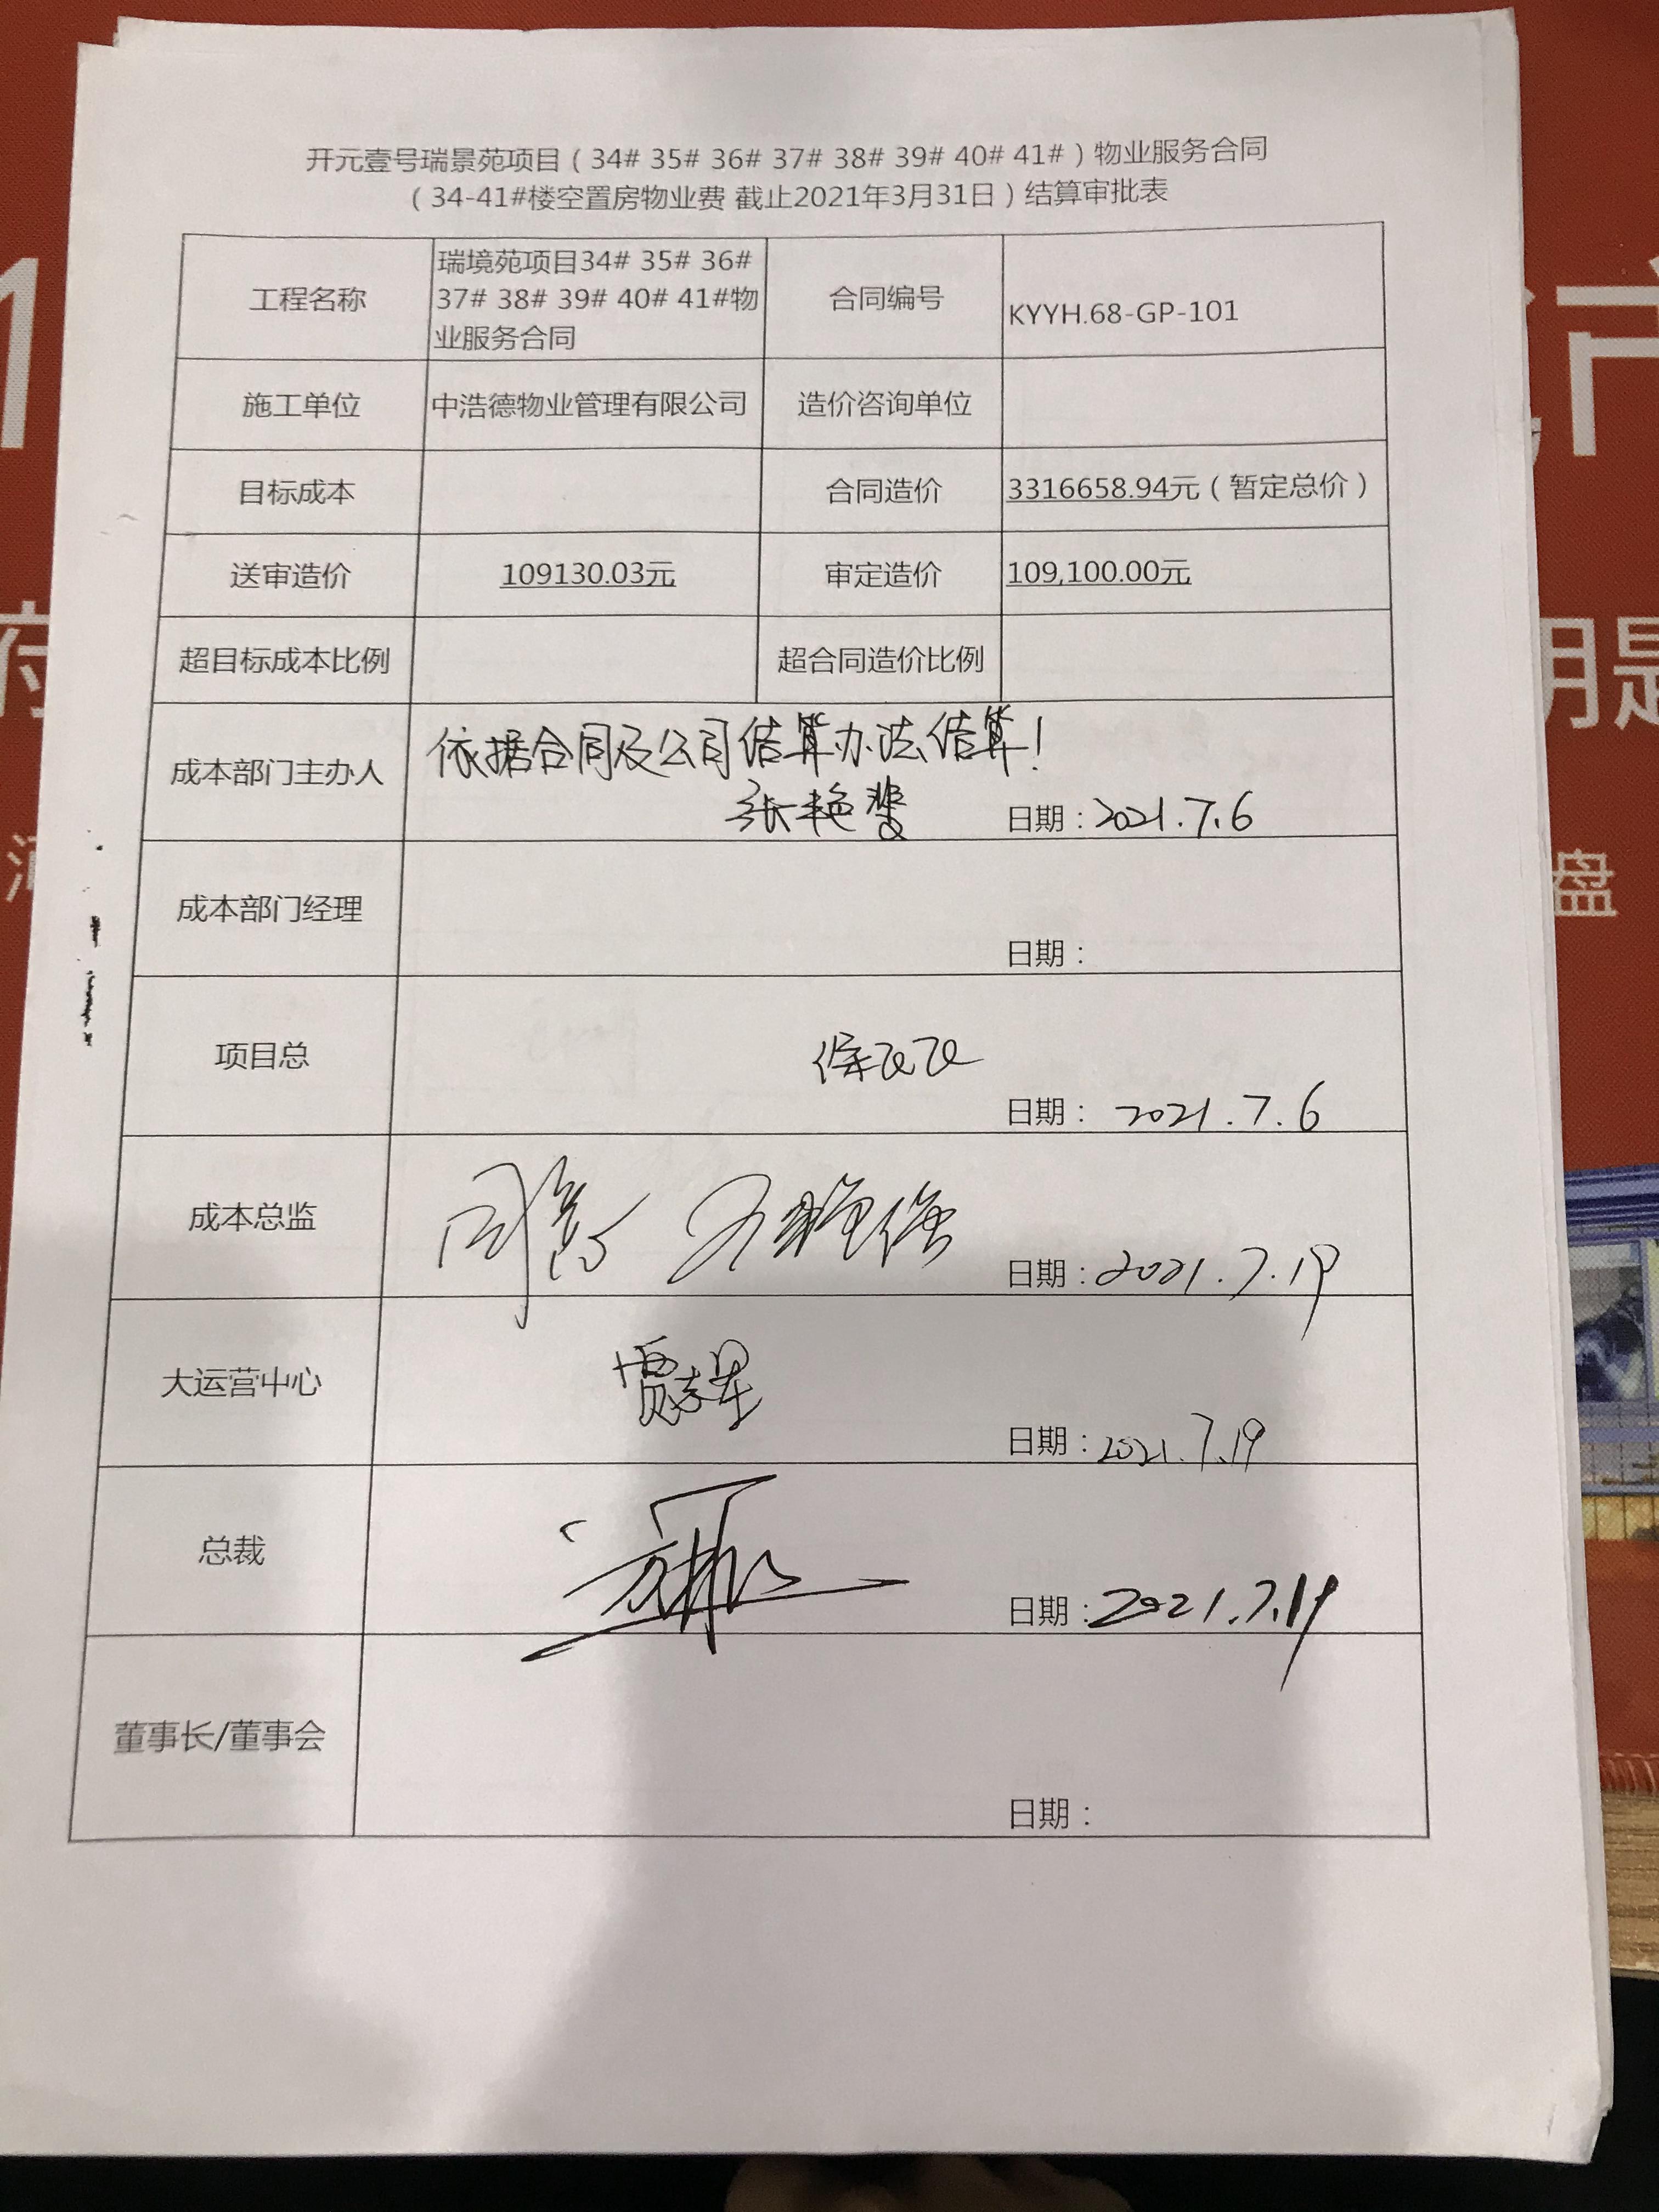 开元壹号瑞景苑项目（34# 35# 36# 37# 38# 39# 40# 41#）物业服务合同
（34-41#楼空置房物业费 截止2021年3月31日）结算审批表
工程名称
瑞境苑项目34# 35# 36#
37# 38# 39# 40# 41#物
业服务合同
合同编号
KYYH.68-GP-101
施工单位
中浩德物业管理有限公司
造价咨询单位
目标成本
合同造价
3316658.94元（暂定总价）
送审造价
109130.03元
审定造价
109,100.00元
超目标成本比例
超合同造价比例
成本部门主办人
依据合同及公司结算办法结算！
张艳
日期：2021.7.6
成本部门经理
日期：
项目总
日期：2021.7.6
成本总监
同意
日期：2021.7.19
大运营中心
贾志星
日期：2021.7.19
总裁
日期：2021.7.19
董事长/董事会
日期：
盘